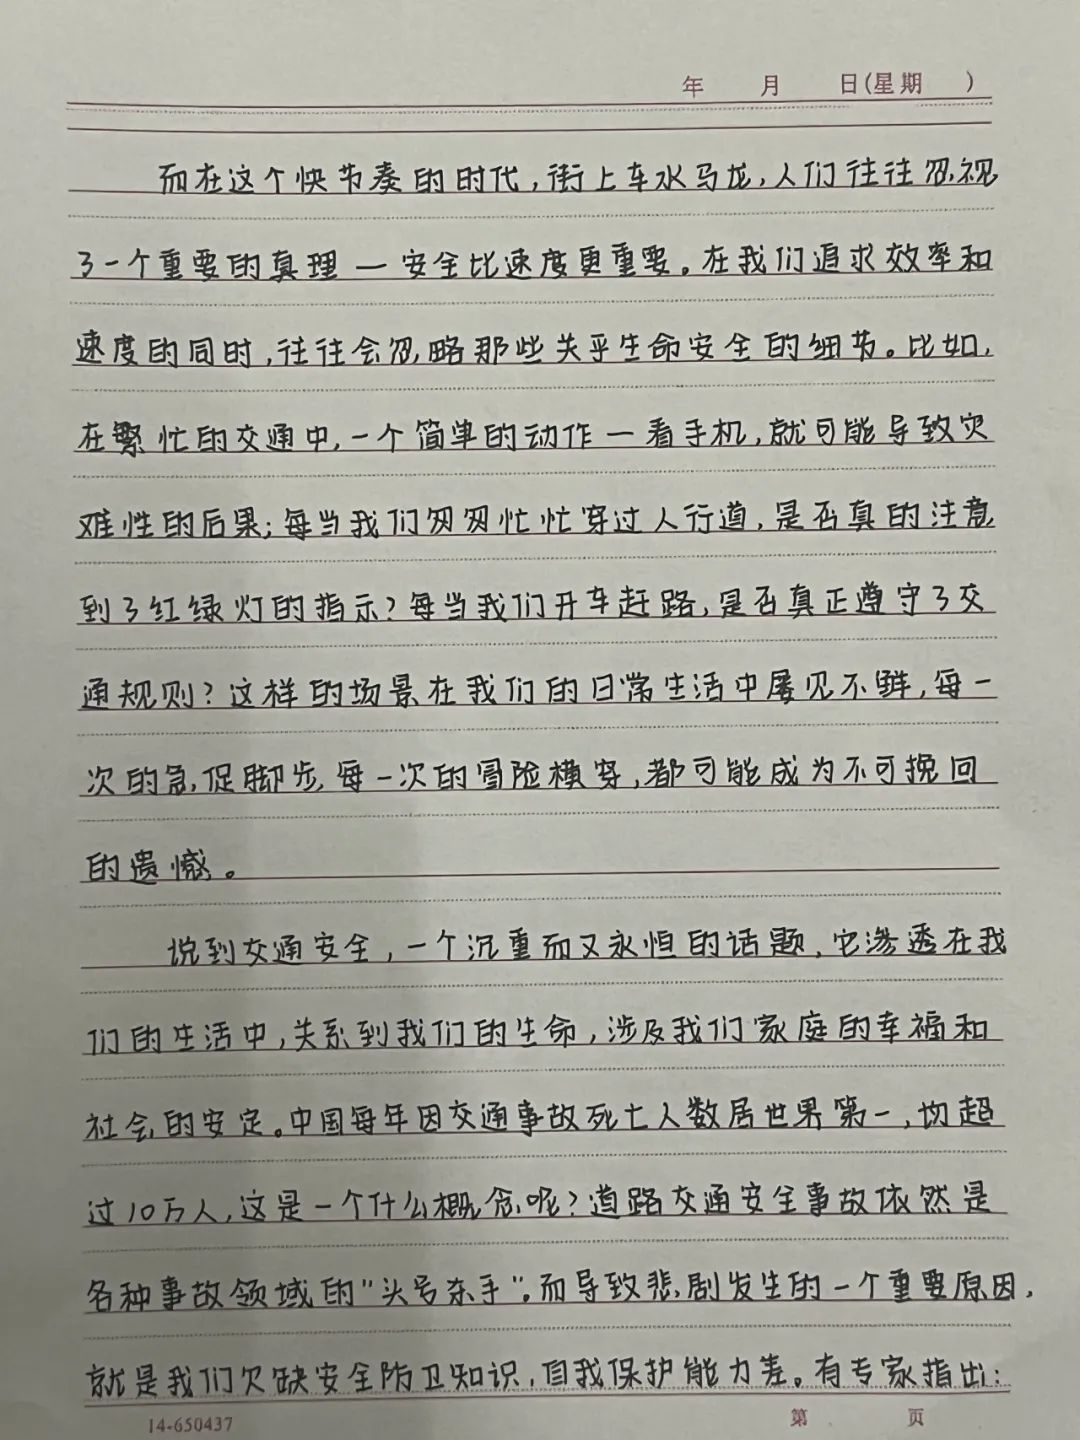 年 月 日(星期 )
而在这个快节奏的时代,街上车水马龙,人们往往忽视
了一个重要的真理—安全比速度更重要。在我们追求效率和
速度的同时,往往会忽略那些关乎生命安全的细节。比如,
在繁忙的交通中,一个简单的动作—看手机,就可能导致灾
难性的后果;每当我们匆匆忙忙穿过人行道,是否真的注意
到了红绿灯的指示?每当我们开车赶路,是否真正遵守了交
通规则?这样的场景在我们的日常生活中屡见不鲜,每一
次的急促脚步,每一次的冒险横穿,都可能成为不可挽回
的遗憾。
说到交通安全,一个沉重而又永恒的话题,它渗透在我
们的生活中,关系到我们的生命,涉及我们家庭的幸福和
社会的安定。中国每年因交通事故死亡人数居世界第一,均超
过10万人,这是一个什么概念呢?道路交通安全事故依然是
各种事故领域的"头号杀手"。而导致悲剧发生的一个重要原因,
就是我们欠缺安全防卫知识,自我保护能力差。有专家指出:
14-650437 第 页